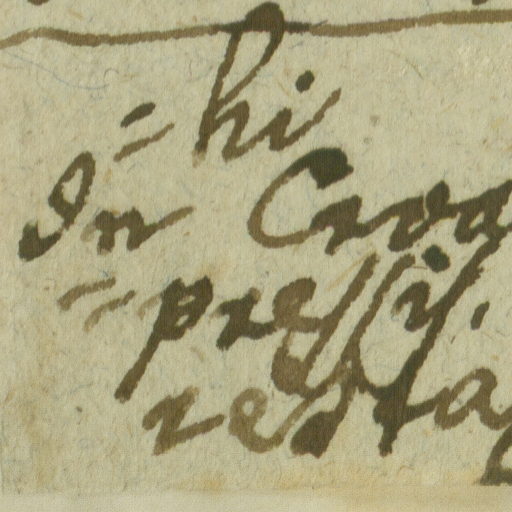 = hi
In Croa
= pressij.
resta